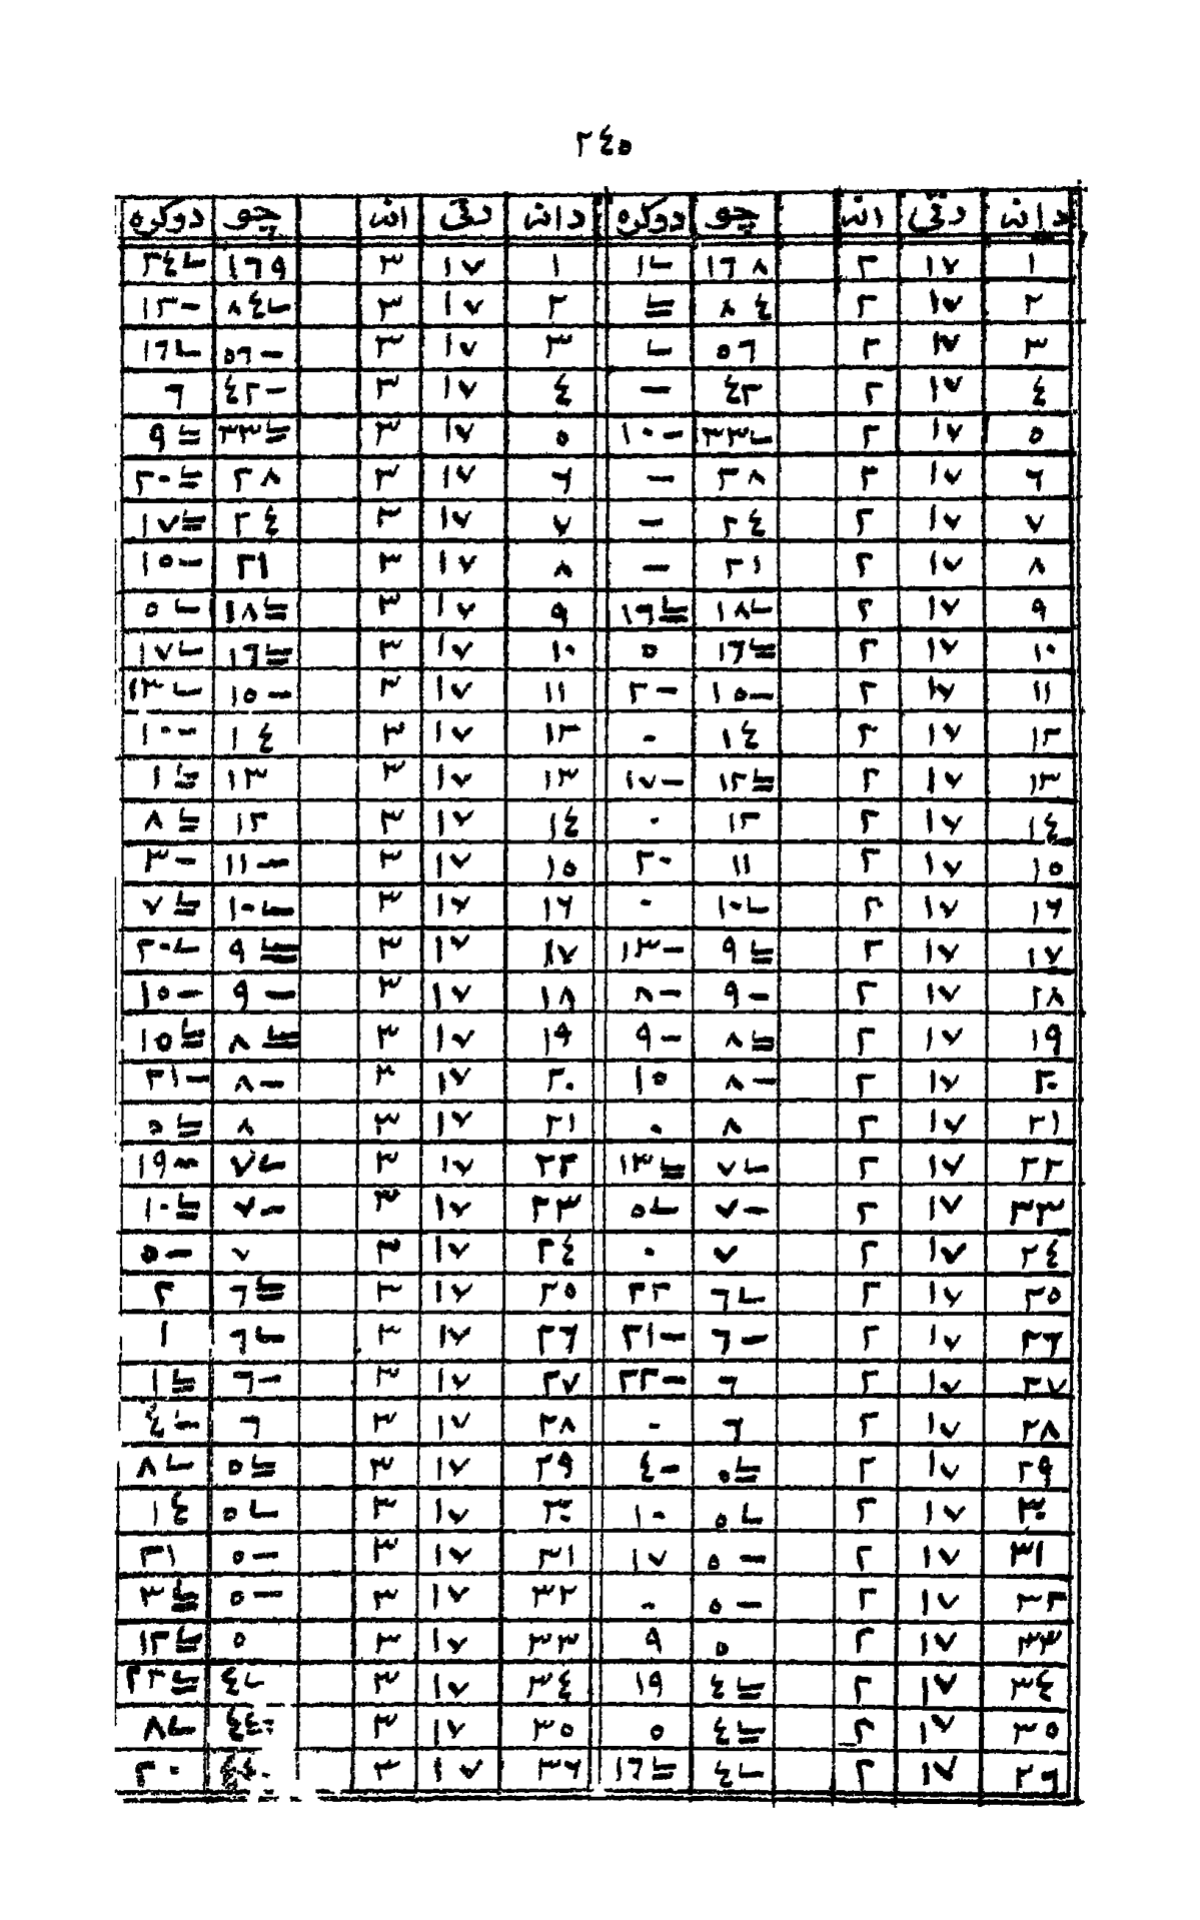 ٢٤٥
دانه دقي انه چو دوكره دانه دقي انه چو دوكره
١ ١٧ ٢ ١٦٨ ١ ١ ١٧ ٣ ١٦٩ ٢٤
٢ ١٧ ٢ ٨٤ ٢ ١٧ ٣ ٨٤ ١٢ -
٣ ١٧ ٢ ٥٦ ٣ ١٧ ٣ ٥٦ - ١٦
٤ ١٧ ٢ ٤٢ - ٤ ١٧ ٣ ٤٢ - ٦
٥ ١٧ ٢ ٣٣ ١٠ - ٥ ١٧ ٣ ٣٣ ٩
٦ ١٧ ٢ ٢٨ - ٦ ١٧ ٣ ٢٨ ٢٠
٧ ١٧ ٢ ٢٤ - ٧ ١٧ ٣ ٢٤ ١٧
٨ ١٧ ٢ ٢١ - ٨ ١٧ ٣ ٢١ ١٥ -
٩ ١٧ ٢ ١٨ ١٦ ٩ ١٧ ٣ ١٨ ٥
١٠ ١٧ ٢ ١٦ ٥ ١٠ ١٧ ٣ ١٦ ١٧
١١ ١٧ ٢ ١٥ - ٢ - ١١ ١٧ ٣ ١٥ - ١٣
١٢ ١٧ ٢ ١٤ ٠ ١٢ ١٧ ٣ ١٤ ١٠ -
١٣ ١٧ ٢ ١٢ ١٧ - ١٣ ١٧ ٣ ١٣ ١
١٤ ١٧ ٢ ١٢ ٠ ١٤ ١٧ ٣ ١٢ ٨
١٥ ١٧ ٢ ١١ ٢٠ ١٥ ١٧ ٣ ١١ - ٣ -
١٦ ١٧ ٢ ١٠ ٠ ١٦ ١٧ ٣ ١٠ ٧
١٧ ١٧ ٢ ٩ ١٣ - ١٧ ١٧ ٣ ٩ ٢٠
٢٨ ١٧ ٢ ٩ - ٨ - ١٨ ١٧ ٣ ٩ - ١٥ -
١٩ ١٧ ٢ ٨ ٩ - ١٩ ١٧ ٣ ٨ ١٥
٢٠ ١٧ ٢ ٨ - ١٥ ٢٠ ١٧ ٣ ٨ - ٢١ -
٢١ ١٧ ٢ ٨ ٠ ٢١ ١٧ ٣ ٨ ٥
٢٢ ١٧ ٢ ٧ ١٣ ٢٢ ١٧ ٣ ٧ ١٩ -
٢٣ ١٧ ٢ ٧ - ٥ ٢٣ ١٧ ٣ ٧ - ١٠
٢٤ ١٧ ٢ ٧ ٠ ٢٤ ١٧ ٣ ٧ ٥ -
٢٥ ١٧ ٢ ٦ ٢٢ ٢٥ ١٧ ٣ ٦ ٢
٢٦ ١٧ ٢ ٦ - ٢١ - ٢٦ ١٧ ٣ ٦ ١
٢٧ ١٧ ٢ ٦ ٢٢ - ٢٧ ١٧ ٣ ٦ - ١
٢٨ ١٧ ٢ ٦ ٠ ٢٨ ١٧ ٣ ٦ ٤ -
٢٩ ١٧ ٢ ٥ ٤ - ٢٩ ١٧ ٣ ٥ ٨
٣٠ ١٧ ٢ ٥ ١٠ ٣٠ ١٧ ٣ ٥ ١٤
٣١ ١٧ ٢ ٥ - ١٧ ٣١ ١٧ ٣ ٥ - ٢١
٣٢ ١٧ ٢ ٥ - ٠ ٣٢ ١٧ ٣ ٥ - ٣
٣٣ ١٧ ٢ ٥ ٩ ٣٣ ١٧ ٣ ٥ ١٢
٣٤ ١٧ ٢ ٤ ١٩ ٣٤ ١٧ ٣ ٤ ٢٢
٣٥ ١٧ ٢ ٤ ٥ ٣٥ ١٧ ٣ ٨
٣٦ ١٧ ٢ ٤ ١٦ ٣٦ ١٧ ٣ ٢٠